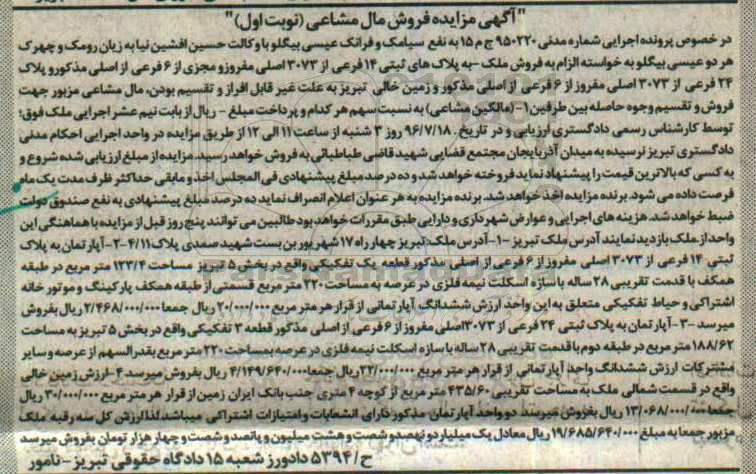 "آگهی مزایده فروش مال مشاعی (نوبت اول)"
در خصوص پرونده اجرایی شماره مدنی ۹۵۰۲۲۰ ج م ۱۵ به نفع سیامک و فرانک عیسی بیگلو با وکالت حسین افشین نیا به زیان رومک و چهرک
هر دو عیسی بیگلو به خواسته الزام به فروش ملک -به پلاک های ثبتی ۱۴ فرعی از ۳۰۷۳ اصلی مفروز و مجزی از ۶ فرعی از اصلی مذکور و پلاک
۲۴ فرعی از ۳۰۷۳ اصلی مفروز از ۶ فرعی از اصلی مذکور و زمین خالی تبریز به علت غیر قابل افراز و تقسیم بودن، مال مشاعی مزبور جهت
فروش و تقسیم وجوه حاصله بین طرفین ۱-(مالکین مشاعی) به نسبت سهم هر کدام و پرداخت مبلغ - ریال از بابت نیم عشر اجرایی ملک فوق؛
توسط کارشناس رسمی دادگستری ارزیابی و در تاریخ ۹۶/۷/۱۸ روز ۳ شنبه از ساعت ۱۱ الی ۱۲ از طریق مزایده در واحد اجرایی احکام مدنی
دادگستری تبریز نرسیده به میدان آذربایجان مجتمع قضایی شهید قاضی طباطبائی به فروش خواهد رسید. مزایده از مبلغ ارزیابی شده شروع و
به کسی که بالاترین قیمت را پیشنهاد نماید فروخته خواهد شد و ده درصد مبلغ پیشنهادی فی المجلس اخذ و مابقی حداکثر ظرف مدت یک ماه
فرصت داده می شود. برنده مزایده اخذ خواهد شد. برنده مزایده به هر عنوان اعلام انصراف نماید ده درصد مبلغ پیشنهادی به نفع صندوق دولت
ضبط خواهد شد. هزینه های اجرایی و عوارض شهرداری و دارایی طبق مقررات خواهد بود طالبین می توانند پنج روز قبل از مزایده با هماهنگی این
واحد از ملک بازدید نمایند آدرس ملک تبریز -۱-آدرس ملک:تبریز چهار راه ۱۷ شهریور بن بست شهید صمدی پلاک ۴/۱۱-۲-آپارتمان به پلاک
ثبتی ۱۴ فرعی از ۳۰۷۳ اصلی مفروز از ۶ فرعی از اصلی مذکور قطعه یک تفکیکی واقع در بخش ۵ تبریز مساحت ۱۲۳/۴ متر مربع در طبقه
همکف با قدمت تقریبی ۲۸ ساله با سازه اسکلت نیمه فلزی در عرصه به مساحت ۲۲۰ متر مربع قسمتی از طبقه همکف پارکینگ و موتور خانه
اشتراکی و حیاط تفکیکی متعلق به این واحد ارزش ششدانگ آپارتمانی از قرار هر متر مربع ۲۰/۰۰۰/۰۰۰ ریال جمعا ۲/۴۶۸/۰۰۰/۰۰۰ ریال بفروش
میرسد -۳-آپارتمان به پلاک ثبتی ۲۴ فرعی از ۳۰۷۳ اصلی مفروز از ۶ فرعی از اصلی مذکور قطعه ۳ تفکیکی واقع در بخش ۵ تبریز به مساحت
۱۸۸/۶۲ متر مربع در طبقه دوم با قدمت تقریبی ۲۸ ساله با سازه اسکلت نیمه فلزی در عرصه بمساحت ۲۲۰ متر مربع بقدرالسهم از عرصه و سایر
مشترکات ارزش ششدانگ واحد آپارتمانی از قرار هر متر مربع ۲۲/۰۰۰/۰۰۰ ریال جمعا ۴/۱۴۹/۶۴۰/۰۰۰ ریال بفروش میرسد ۴-ارزش زمین خالی
واقع در قسمت شمالی ملک به مساحت تقریبی ۴۳۵/۶۰ متر مربع از کوچه ۴ متری جنب بانک ایران زمین از قرار هر متر مربع ۳۰/۰۰۰/۰۰۰ ریال
جمعا ۱۳/۰۶۸/۰۰۰/۰۰۰ ریال بفروش میرسد دو واحد آپارتمان مذکور دارای انشعابات و امتیازات اشتراکی میباشد لذا ارزش کل سه رقبه ملک
مزبور جمعا به مبلغ ۱۹/۶۸۵/۶۴۰/۰۰۰ ریال معادل یک میلیارد و نهصد و شصت و هشت میلیون و پانصد و شصت و چهار هزار تومان بفروش میرسد
ح/ ۵۳۹۴ دادورز شعبه ۱۵ دادگاه حقوقی تبریز - نامور